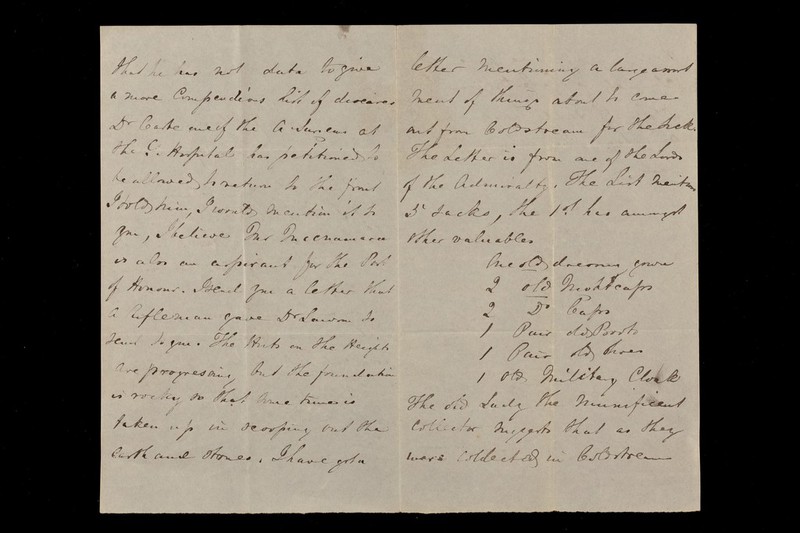 that he has not data to give
a more Compendious List of diseases
Dr Cooke one of the A Surgeons at
the G. Hospital has petitioned to
be allowed to return to the front
I told him, I would mention it to
you, I believe Dr Macnamara
is also an aspirant for the Post
of Honour. I send you a letter that
a rifleman gave Dr Lawson to
send to you. The Huts on the Heights
are progressing but the foundation
is rocky so that some time is
taken up in scooping out the
earth and stones. I have got a
letter mentioning a large assort
ment of things about to come
out from Coldstream for the Sick.
The Letter is from one of the Lords
of the Admiralty. The List mentions
5 Sacks, the 1st has amongst
other valuables
One old dressing gown
2 old Nightcaps
2 Do Caps
1 Pair old Boots
1 Pair old Shoes
1 old Military Cloak
The old Lady the Munificent
Collector suggests that as they
were collected in Coldstream